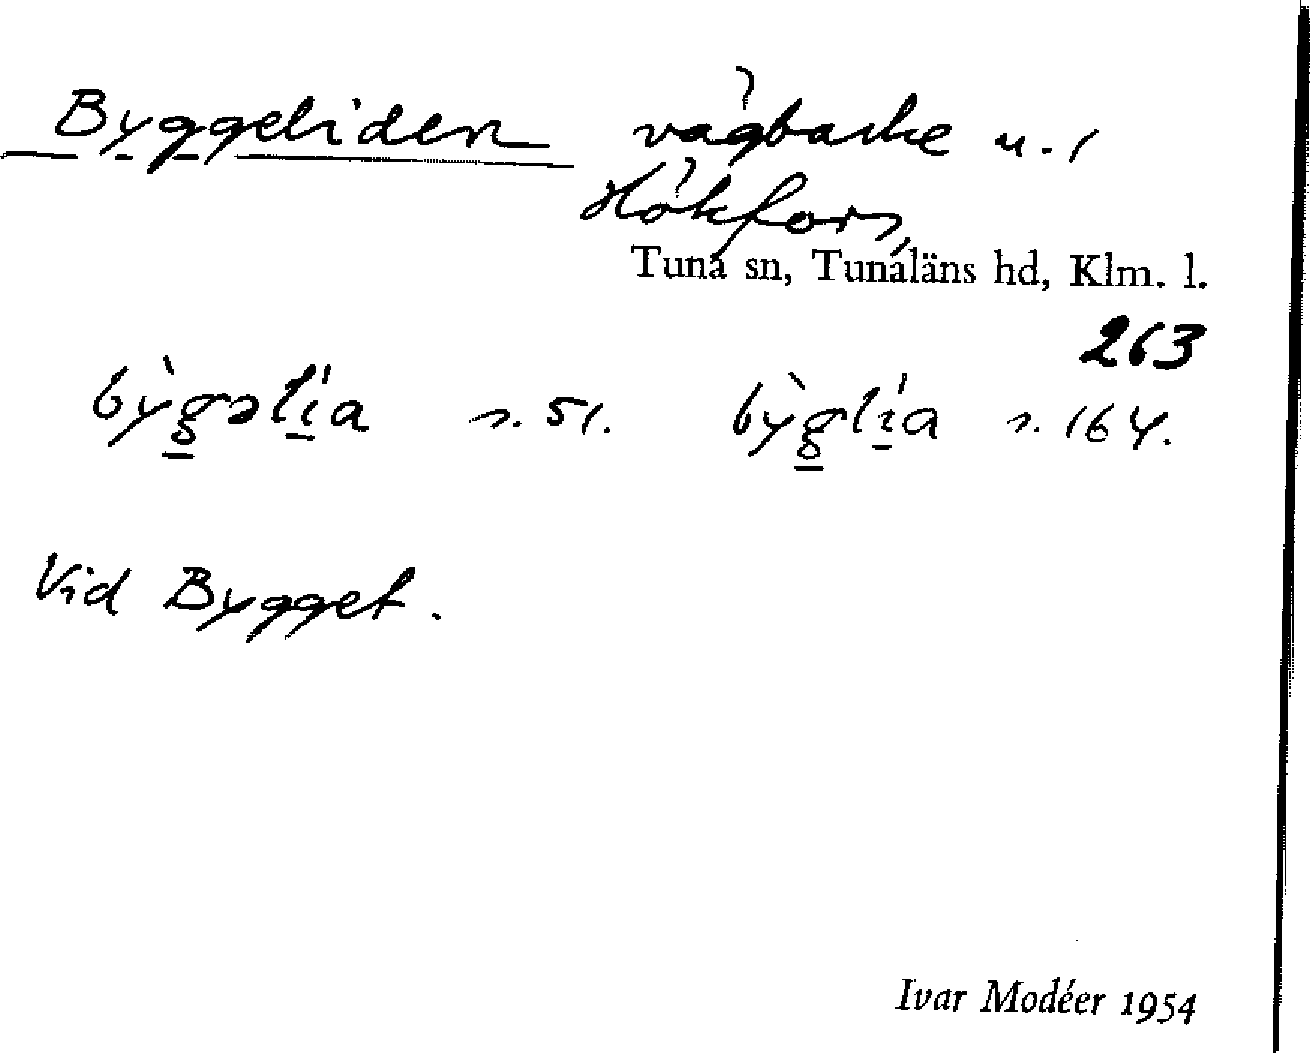 Byggeliden vägbacke u. 1
Hökfors,
Tuna sn, Tunaläns hd, Klm. l.
263
bỳgəlía s. 51. bỳglía s. 164.
Vid Bygget.
Ivar Modéer 1954